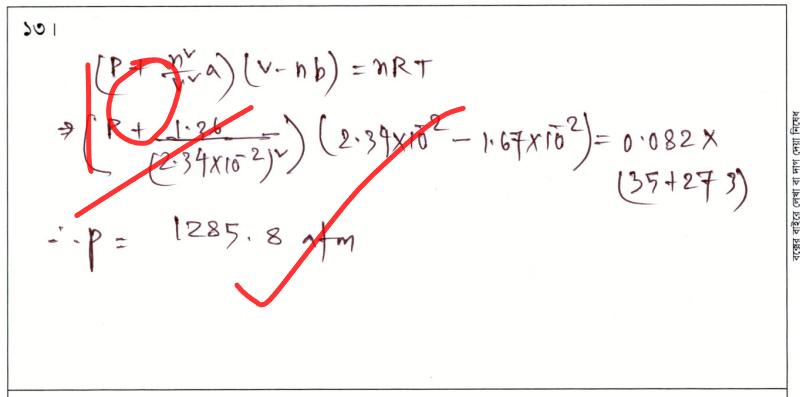 ১৩।
(P + n²/v² a) (v - nb) = nRT
⇒ (P + 1.26/(2.34×10⁻²)²) (2.34×10⁻² - 1.67×10⁻²) = 0.082 ×
(35+273)
∴ P = 1285.8 atm
বক্সের বাইরে লেখা বা দাগ দেয়া নিষেধ